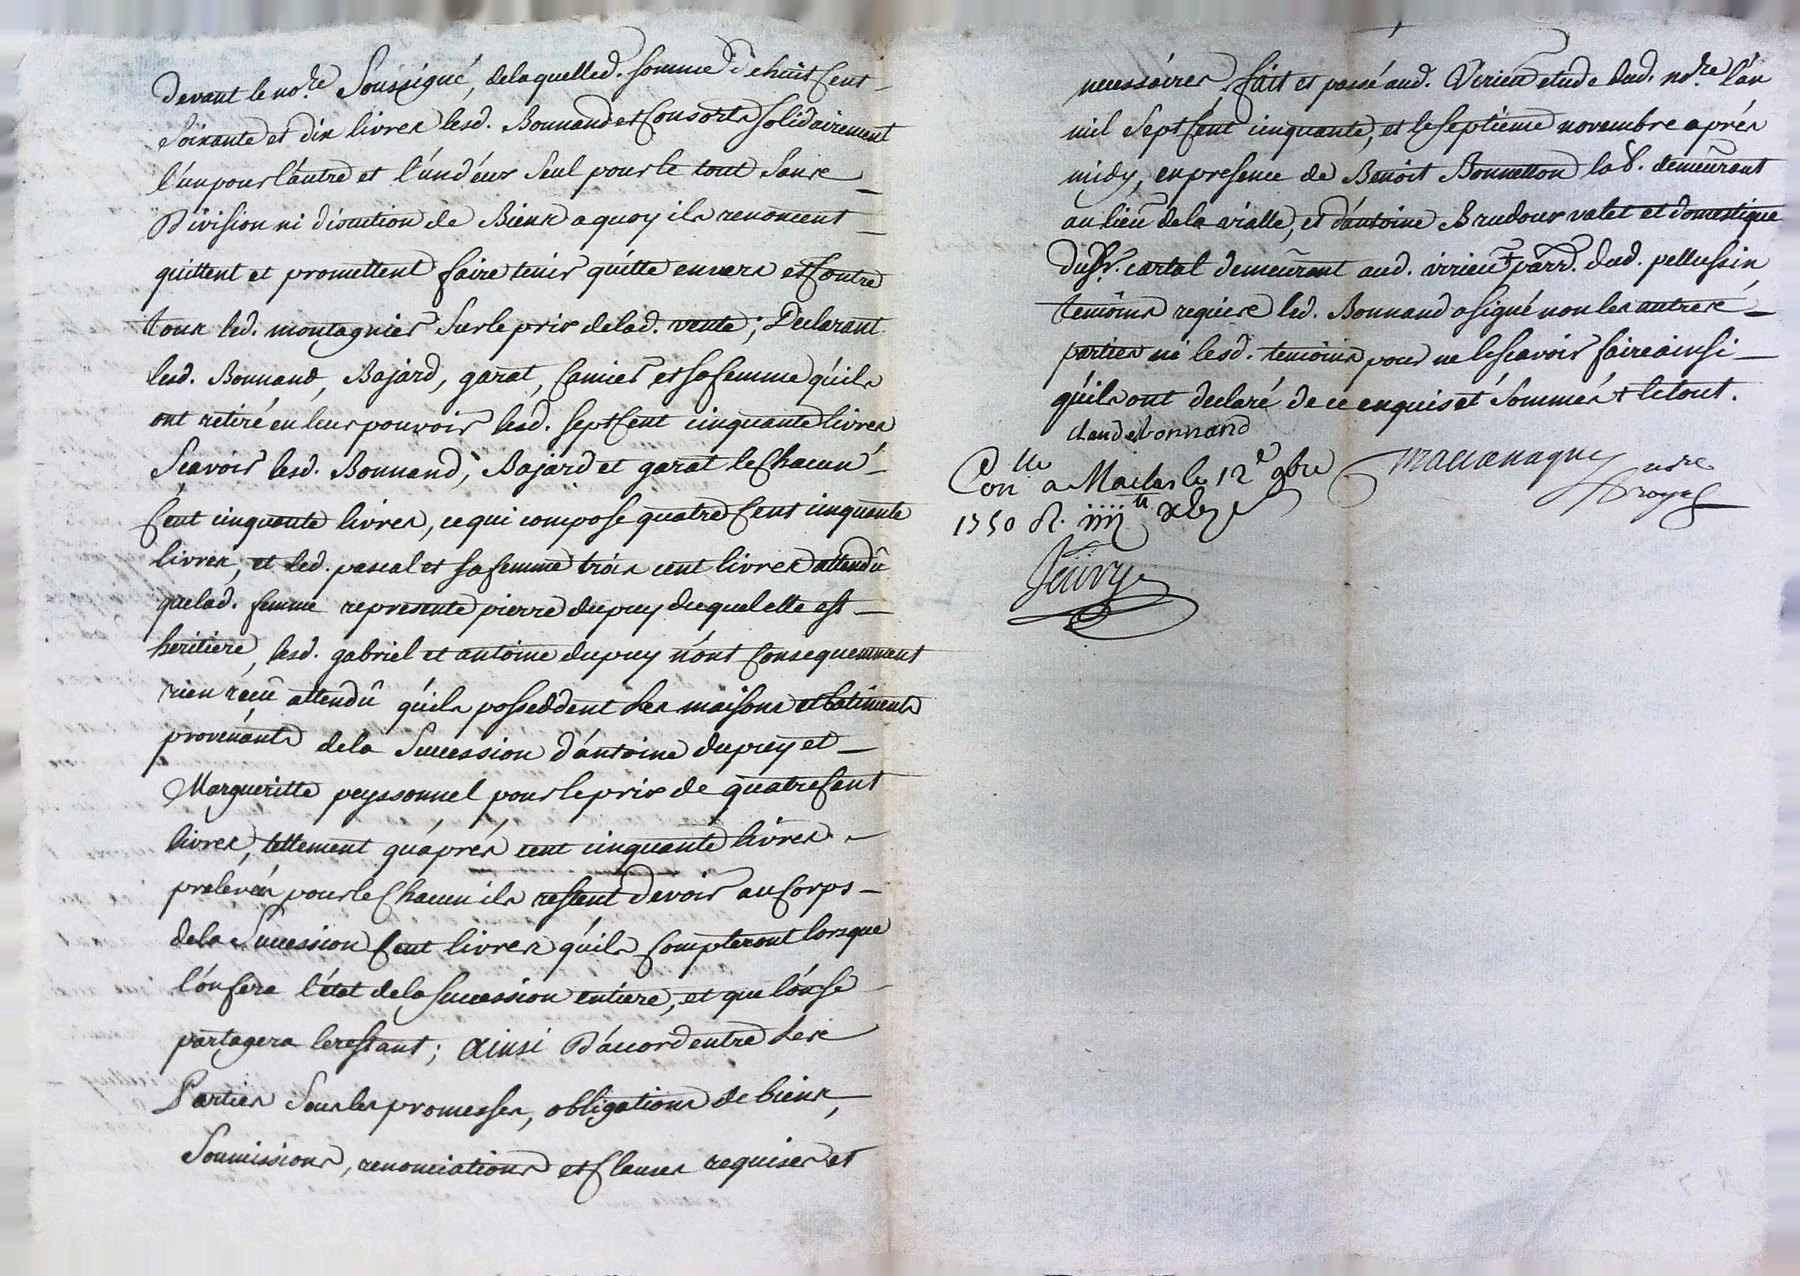 devant le no.re Soussigné, de laquelled. somme de huit Cent
Soixante et dix livres lesd. Bonnand et Consorts solidairement
l'un pour l'autre et l'un d'eux seul pour le tout sans
Division ni discution de Biens a quoy ils renoncent
quittent et promettent faire tenir quitte envers et Contre
tous led. montagnier sur le prix de lad. vente; Declarant
lesd. Bonnand, Bajard, garat, Camier et sa femme qu'ils
ont retiré en leur pouvoir lesd. sept Cent cinquante livres
Scavoir lesd. Bonnand, Bajard et garat le Chacun
Cent cinquante livres, ce qui compose quatre Cent cinquante
livres, et led. pascal et sa femme trois cent livres attendû
que lad. femme represente pierre dupuy duquel elle est
heritiere, lesd. gabriel et antoine dupuy n'ont Consequemment
rien reçû attendû qu'ils possedent les maisons et batiments
provenants de la Succession d'antoine dupuy et
Margueritte peyssonnel pour le prix de quatre Cent
livres, tellement qu'aprés cent cinquante livres
prelevés pour le Chacun ils restent devoir au Corps
de la Succession Cent livres qu'ils Compteront lorsque
l'on fera l'état de la succession entiere, et que l'on se
partagera le restant; ainsi D'accord entre les
Parties sous les promesses, obligations de biens,
Soumissions, renonciations et Clauses requises et
necessaires, fait et passé aud. Virieu etude dud. no.re l'an
mil Sept Cent cinquante, et le septieme novembre aprés
midy, en presence de Benoit Bonnetton lab. demeurant
au lieu de la vialle, et d'antoine Brudour valet et domestique
du Sr. cartal demeurant aud. virieu parr. dud. pellussin,
temoins requis led. Bonnand a signé non les autres
parties ni lesd. temoins pour ne le scavoir faire ainsi
qu'ils ont declaré de ce enquis et Sommés le tout.
claude bonnand
Con.lle a Maclas le 12e 9bre
1750 R. iiii tt
nore
royal